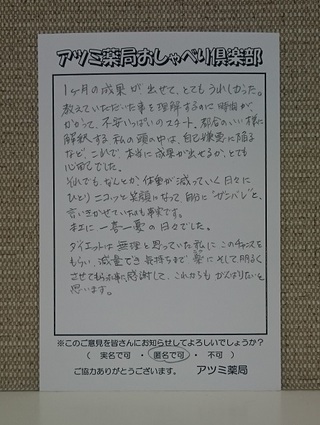 アツミ薬局おしゃべり倶楽部
1ヶ月の成果が出せて、とてもうれしかった。
教えていただいた事を理解するのに時間が
かかって、不安いっぱいのスタート。都合のいい様に
解釈する私の頭の中は、自己嫌悪に陥る
など、これで、本当に成果が出せるか、とても
心配でした。
それでも、なんとか、体重が減っていく日々に
ひとりニコッと笑顔になって自分に"ガンバレ"と、
言いきかせていたのも事実です。
まさに一喜一憂の日々でした。
ダイエットは無理と思っていた私にこのチャンスを
もらい、減量でき気持ちまで楽にそして明るく
させてもらった事に感謝して、これからもがんばりたいと
思います。
※このご意見を皆さんにお知らせしてよろしいでしょうか?
( 実名で可 ・ 匿名で可 ・ 不可 )
ご協力ありがとうございます。 アツミ薬局